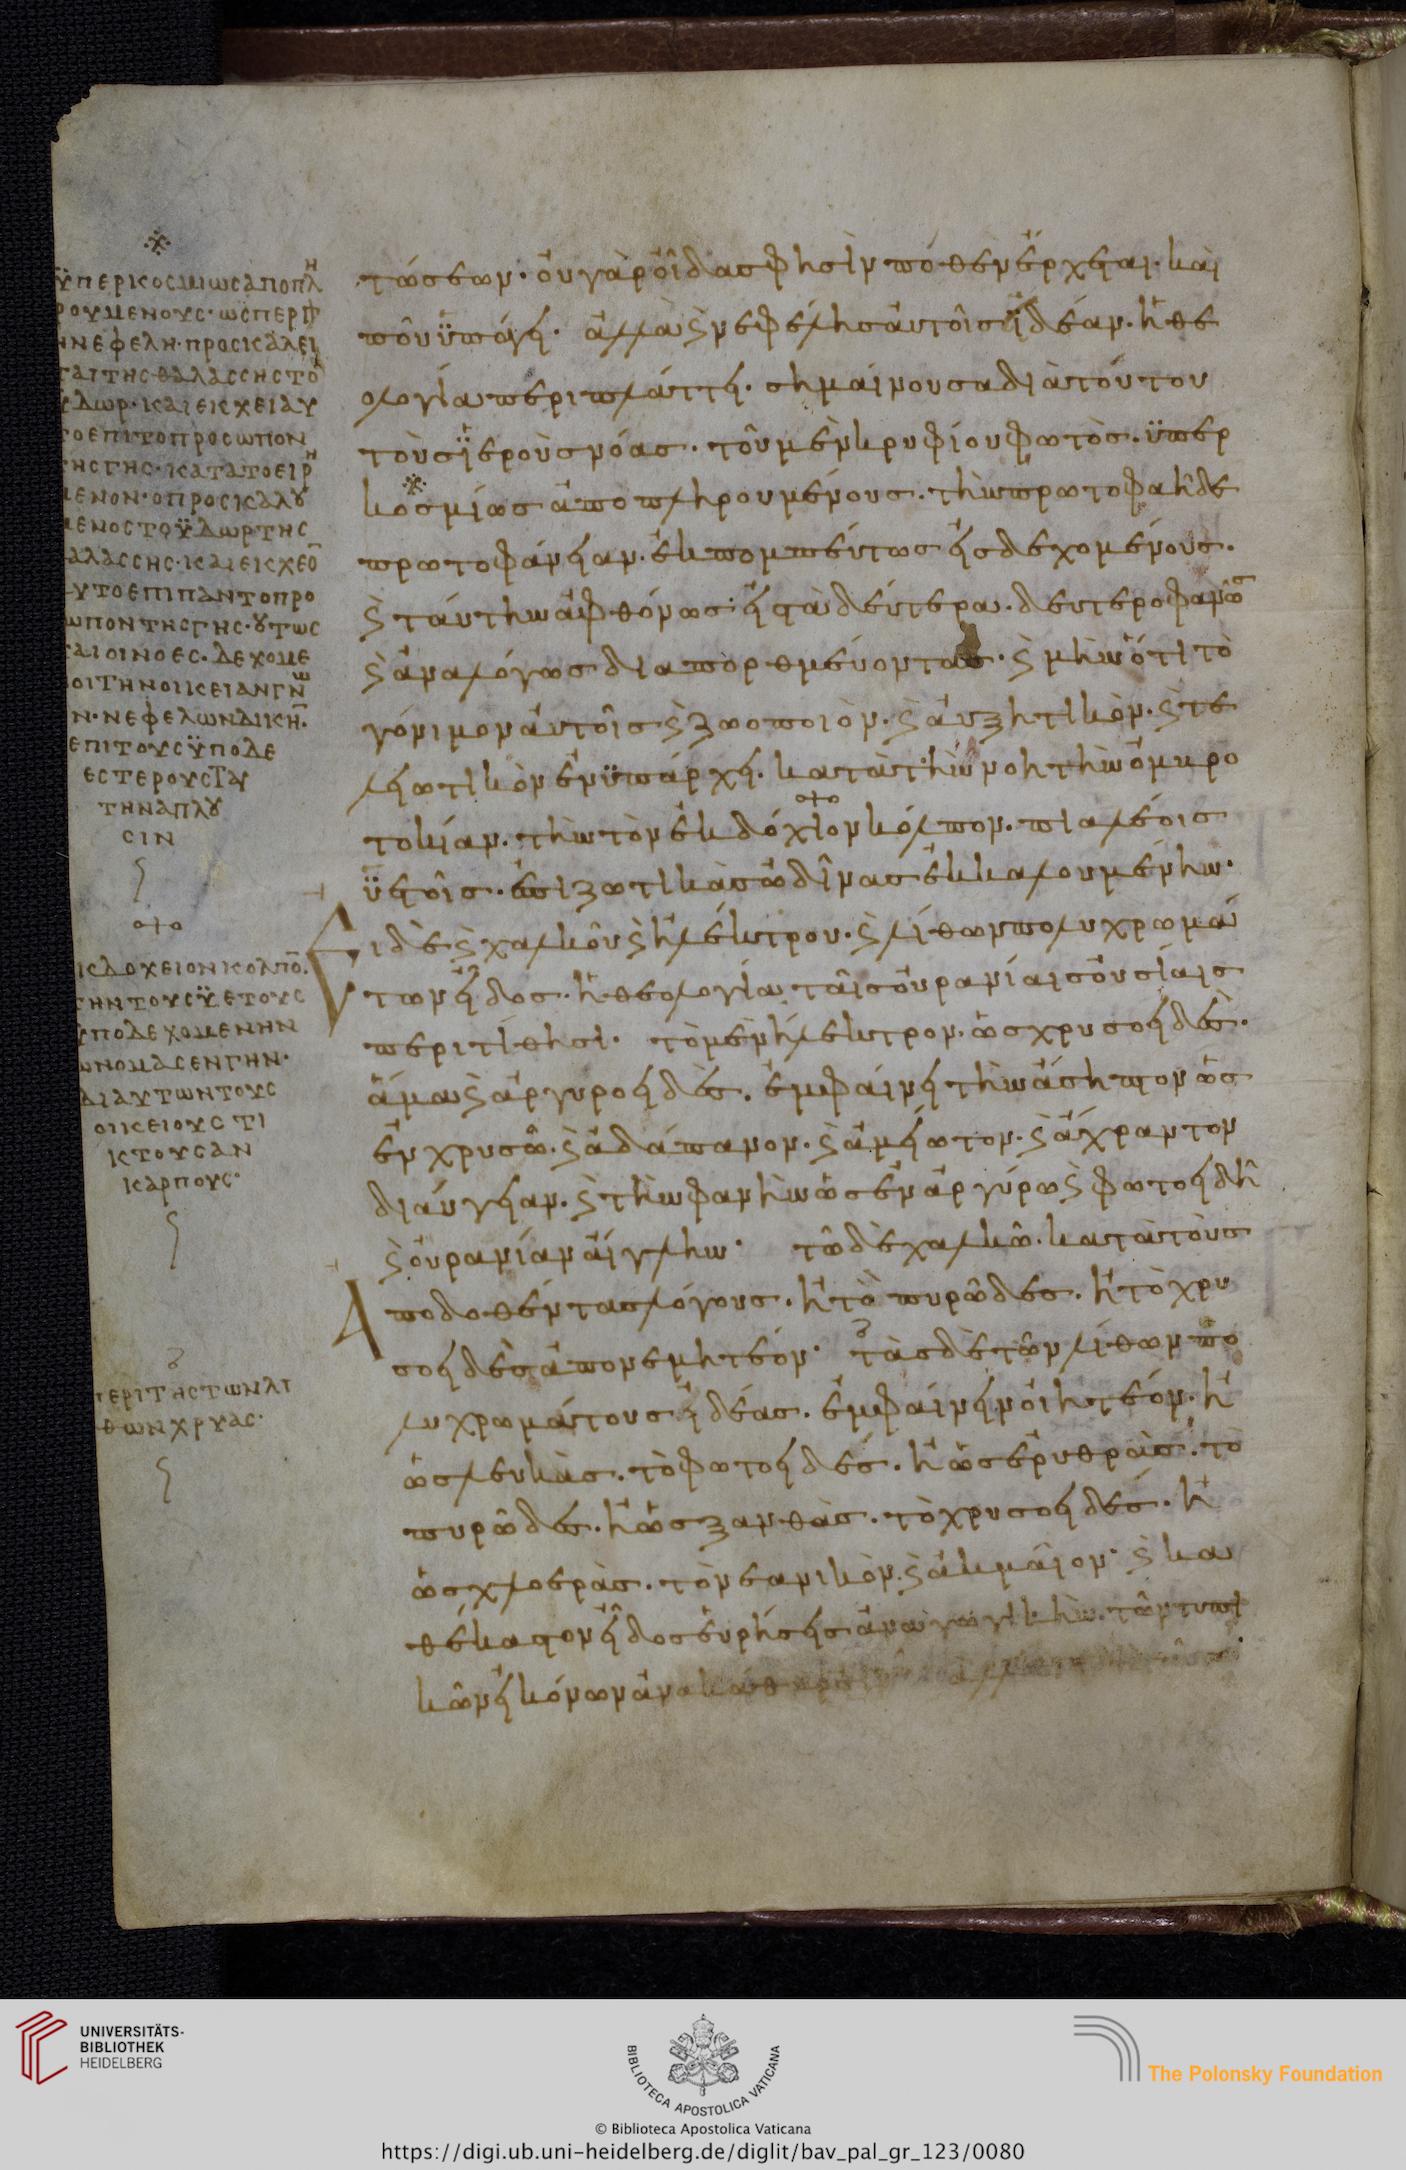 τώσεων· οὐ γὰρ οἶδας φησὶν πόθεν ἔρχεται· καὶ
ποῦ ὑπάγει· ἀλλὰ καὶ νεφέλης αὐτοῖς ἰδέαν· ἡ θε
ολογία περιπλάττει· σημαίνουσα διὰ τούτου
τοὺς ἱεροὺς νόας· τοῦ μὲν κρυφίου φωτὸς· ὑπερ
κοσμίως ἀποπληρουμένους· τὴν πρωτοφαῆ δὲ
πρωτοφάνειαν· ἐκπομπεύτως εἰσδεχομένους·
καὶ ταύτην ἀφθόνως· εἰς τὰ δεύτερα· δευτεροφανῶς
καὶ ἀναλόγως διαπορθμεύοντας· καὶ μὴν ὅτι τὸ
γόνιμον αὐτοῖς καὶ ζωοποιὸν· καὶ αὐξητικὸν· καὶ τε
λειωτικὸν ἐνυπάρχει· κατὰ τὴν νοητὴν ὀμβρο
τοκίαν· τὴν τὸν ἐκδόχιον κόλπον· πιαλέοις
ὑετοῖς· ἐπὶ ζωτικὰς ὠδῖνας ἐκκαλουμένην·
Εἰ δὲ καὶ χαλκοῦ καὶ ἠλέκτρου· καὶ λίθων πολυχρωμά
των εἶδος· ἡ θεολογία ταῖς οὐρανίαις οὐσίαις
περιτίθησι· τὸ μὲν ἤλεκτρον· ὡς χρυσοειδὲς·
ἅμα καὶ ἀργυροειδὲς· ἐμφαίνει τὴν ἄσηπτον ὡς
ἐν χρυσῷ· καὶ ἀδάπανον· καὶ ἀμείωτον· καὶ ἄχραντον
διαύγειαν· καὶ τὴν φανὴν ὡς ἐν ἀργύρῳ καὶ φωτοειδῆ
καὶ οὐρανίαν αἴγλην· τῷ δὲ χαλκῷ· κατὰ τοὺς
Αποδοθέντας λόγους· ἢ τὸ πυρῶδες· ἢ τὸ χρυ
σοειδὲς ἀπονεμητέον· τὰς δὲ τῶν λίθων πο
λυχρωμάτους εἰδέας· ἐμφαίνειν οἰητέον· ἢ
ὡς λευκὰς· τὸ φωτοειδές· ἢ ὡς ἐρυθρὰς· τὸ
πυρῶδες· ἢ ὡς ξανθὰς· τὸ χρυσοειδές· ἢ
ὡς χλοερὰς· τὸ νεανικὸν· καὶ ἀκμαῖον· καὶ κα
θέκαστον εἶδος εὑρήσεις ἀναγωγικὴν· τῶν τυπι
κῶν εἰκόνων ἀνακάθαρσιν ἀλλ
ὑπερκοσμίως ἀποπλη
ρουμένους· ὥσπερ γ
νεφέλη· προσκαλεῖ
ται τῆς θαλάσσης τὸ
ὕδωρ· καὶ ἐκχεῖ αὐ
τὸ ἐπὶ τὸ πρόσωπον
τῆς γῆς· κατὰ τὸ εἰρη
μένον· ὁ προσκαλού
μενος τὸ ὕδωρ τῆς
θαλάσσης· καὶ ἐκχέον
αὐτὸ ἐπὶ πᾶν τὸ πρό
σωπον τῆς γῆς· οὕτως
καὶ οἱ νόες· δεχόμε
νοι τὴν οἰκείαν γνῶ
σιν· νεφελῶν δίκην·
ἐπὶ τοὺς ὑποδε
εστέρους ταύ
την ἁπλοῦ
σιν
ἐκδοχεῖον κόλπον·
τὴν τοὺς ὑετοὺς
ὑποδεχομένην
ὠνόμασεν γῆν·
δι αὐτῶν τοὺς
οἰκείους τί
κτουσαν
καρπούς·
περὶ τῆς τῶν λί
θων χρυας·
UNIVERSITÄTS-
BIBLIOTHEK
HEIDELBERG
BIBLIOTECA APOSTOLICA VATICANA
The Polonsky Foundation
© Biblioteca Apostolica Vaticana
https://digi.ub.uni-heidelberg.de/diglit/bav_pal_gr_123/0080